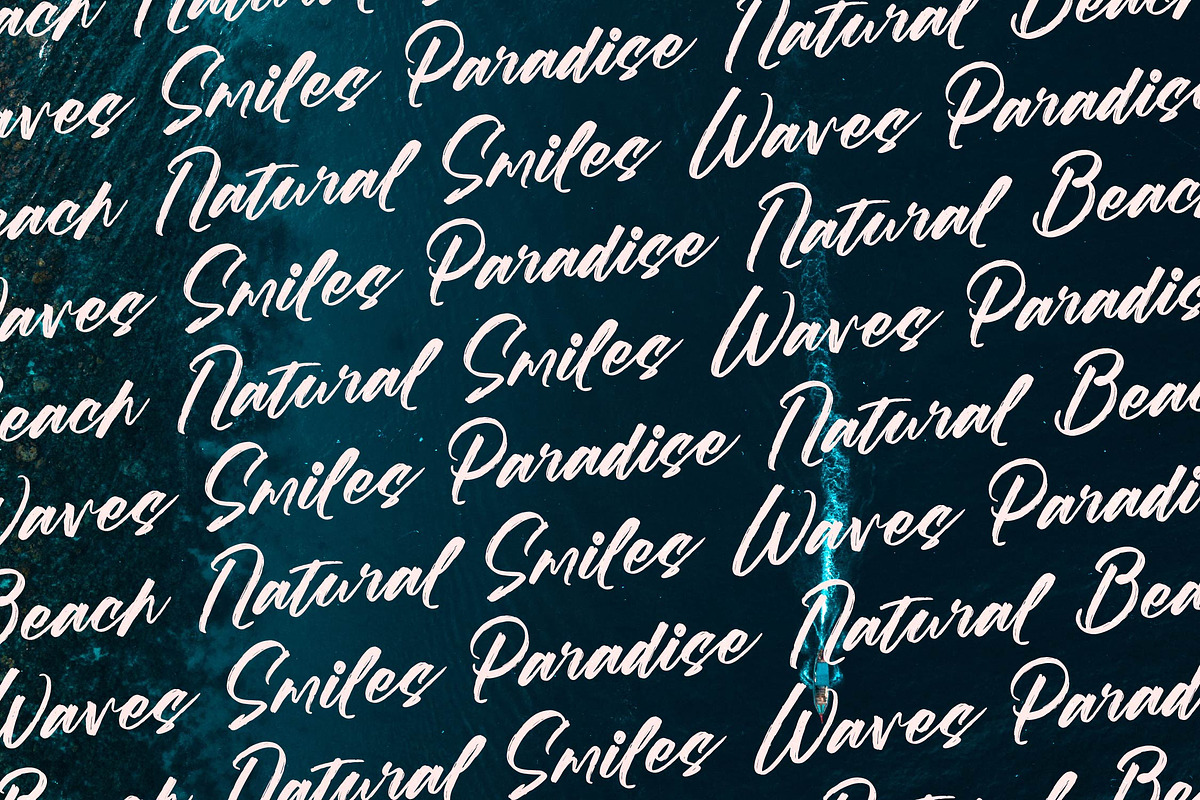 each Natural
Waves Smiles Paradise Natural Beach
Beach Natural Smiles Waves Paradise
Waves Smiles Paradise Natural Beach
Beach Natural Smiles Waves Paradis
Waves Smiles Paradise Natural Beac
Beach Natural Smiles Waves Paradi
Waves Smiles Paradise Natural Bea
Beach Natural Smiles Waves Parad